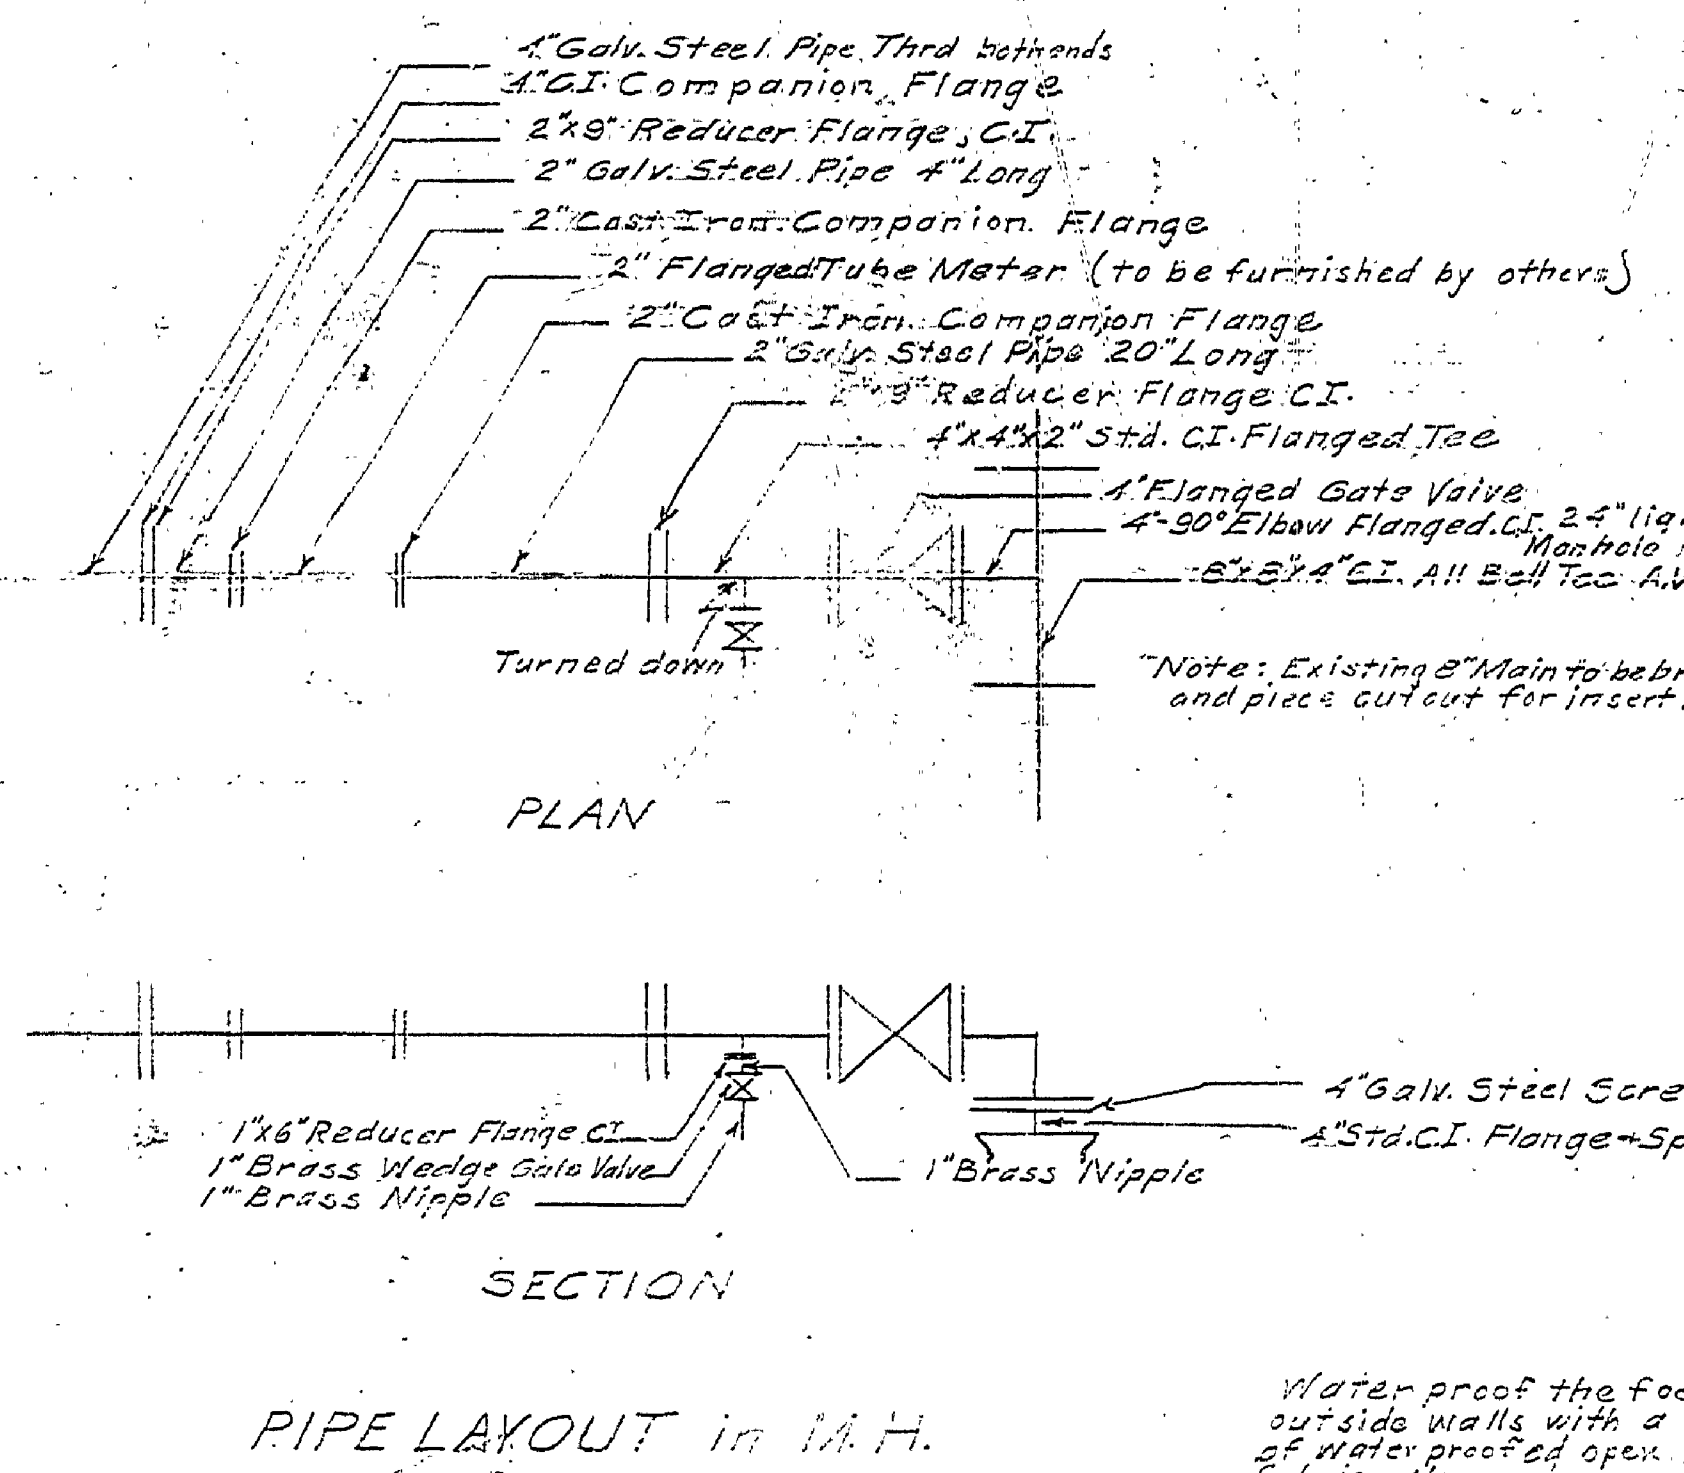 4" Galv. Steel Pipe, Thrd both ends
4" C.I. Companion Flange
2"x9" Reducer Flange, C.I.
2" Galv. Steel Pipe 4" Long
2" Cast Iron Companion Flange
2" Flanged Tube Meter (to be furnished by others)
2" Cast Iron Companion Flange
2" Galv. Steel Pipe 20" Long
9" Reducer Flange C.I.
4"x4"x2" Std. C.I. Flanged Tee
4" Flanged Gate Valve
4"-90° Elbow Flanged C.I.
24" lig.
Manhole
8"x8"x4" C.I. All Bell Tee A.W
Turned down
Note: Existing 8" Main to be br
and piece cut out for insert.
PLAN
4" Galv. Steel Scre
4" Std. C.I. Flange & Sp
1"x6" Reducer Flange CI
1" Brass Wedge Gate Valve
1" Brass Nipple
1" Brass Nipple
SECTION
PIPE LAYOUT in M.H.
Water proof the foo
outside walls with a
of water proofed open